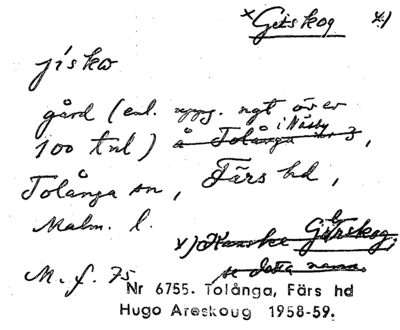 ×Gitskog x)
jisko
gård (enl. uppg. ngt över
i Näsby
100 tnl) å Tolånga nr 3,
Tolånga sn, Färs hd,
Malm. l.
x) Kanske Görskog,
se detta namn.
M. f. 75
Nr 6755. Tolånga, Färs hd
Hugo Areskoug 1958-59.